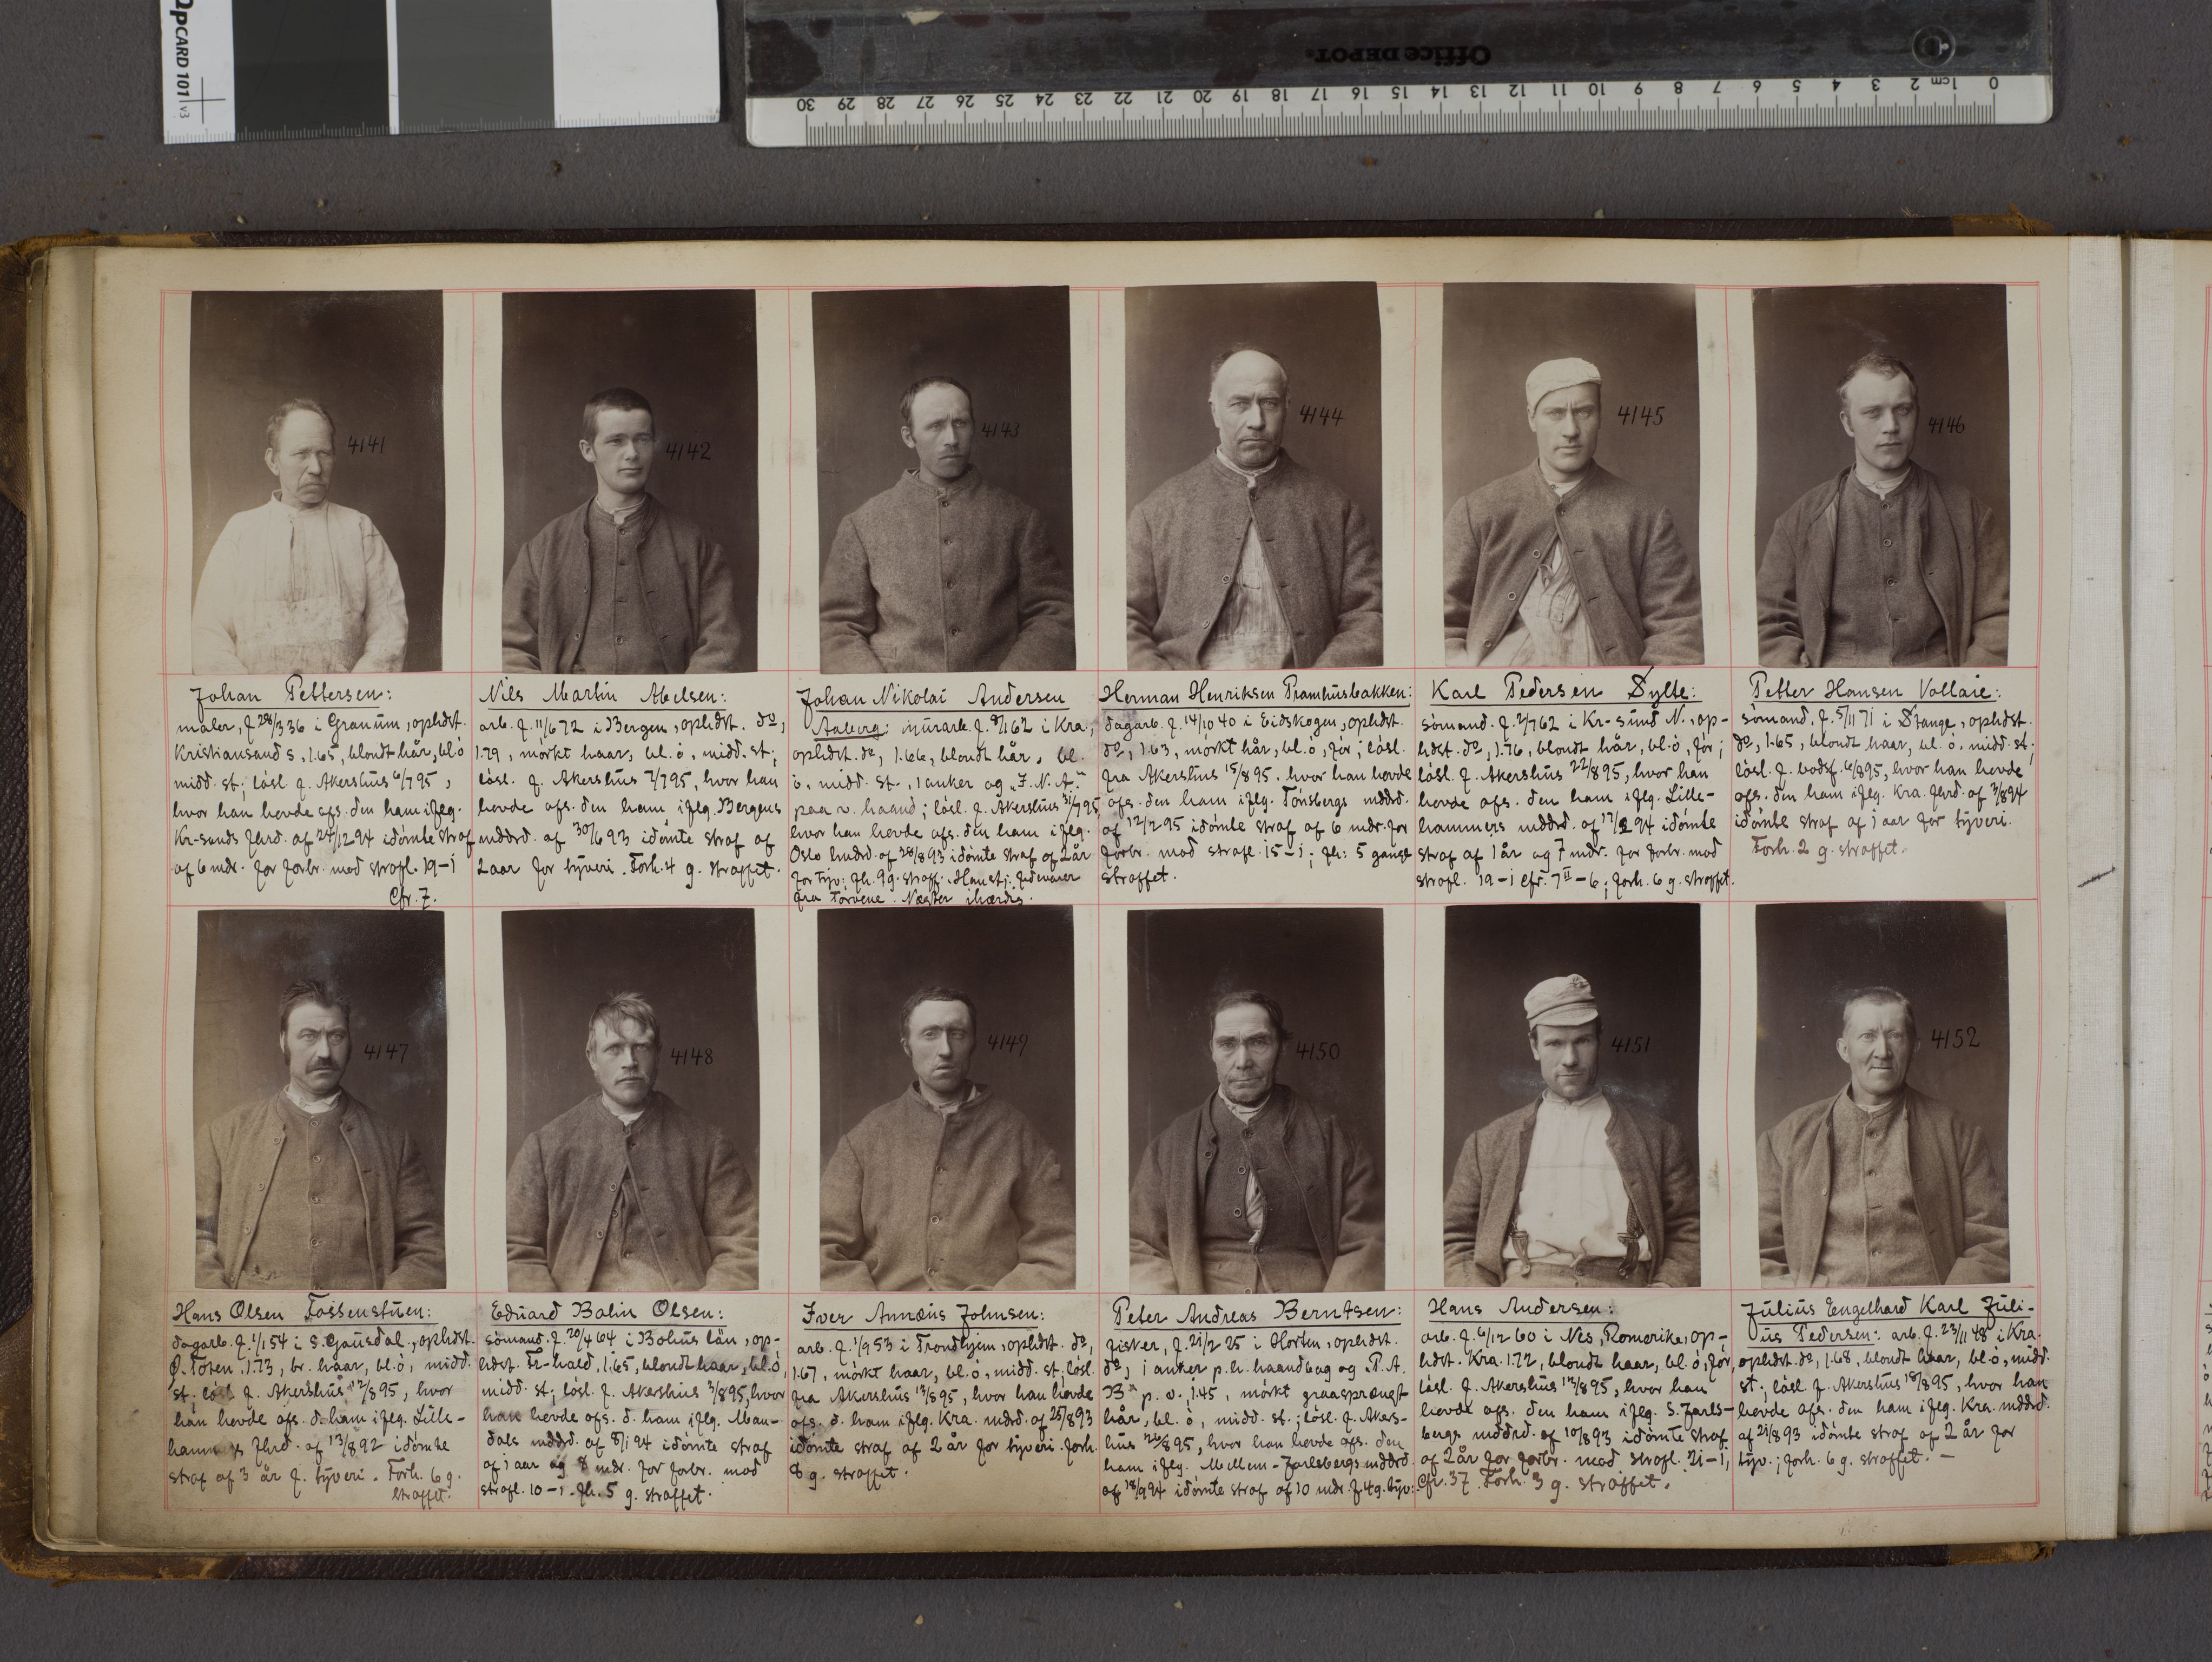 QPCARD 101 v3
Office DEPOT
0 1cm 2 3 4 5 6 7 8 9 10 11 12 13 14 15 16 17 18 19 20 21 22 23 24 25 26 27 28 29 30
4141
4142
4143
4144
4145
4146
Johan Pettersen:
maler, f. 28/3 36 i Granum, ophdst.
Kristiansand S, 1.65, blondt hår, bl. ö
midd. st; lösl. f. Akershus 6/7 95,
hvor han hevde afs. den ham iflg.
Kr-sands fhrd. af 24/12 94 idömte straf
af 6 mdr. for forbr. mod strafl. 19-1
Cfr. 7.
Nils Martin Abelsen:
arb. f. 11/6 72 i Bergen, ophdst. do,
1.79, mörkt haar, bl. ö, midd. st;
lösl. f. Akershus 7/7 95, hvor han
hevde afs. den ham iflg. Bergens
mddrd. af 30/6 93 idömte straf af
2 aar for tyveri. Forh. 4 g. straffet.
Johan Nikolai Andersen
Aaberg: murarb. f. 9/1 62 i Kra,
ophdst. do, 1.66, blondt hår, bl.
ö, midd. st., 1 anker og "J. N. A."
paa v. haand; lösl. f. Akershus 31/7 95
hvor han hevde afs. den ham iflg.
Oslo mdrd. af 28/8 93 idömte straf af 2 år
for tyv; fh. 9 g. straff. Han stj. fedevarer
fra Torvene. Nægter ihærdig.
Herman Henriksen Pramhusbakken:
dagarb. f. 14/10 40 i Eidskogen, ophdst.
do, 1.63, mörkt hår, bl. ö,för; lösl.
fra Akershus 15/8 95, hvor han hevde
afs. den ham iflg. Tönsbergs mddrd.
af 12/2 95 idömte straf af 6 mdr. for
forbr. mod strafl. 15-1; fh: 5 gange
straffet.
Karl Pedersen Sylte:
sömand. f. 2/7 62 i Kr-sund N., op-
hdst. do, 1.76, blondt hår, bl. ö, för;
lösl. f. Akershus 22/8 95, hvor han
hevde afs. den ham iflg. Lille-
hammers mddrd. af 94 idömte
straf af 1 år og 7 mdr. for forbr. mod
strafl. 19-1 cfr. 7 II-6; forh. 6 g. straffet.
Petter Hansen Vollaie:
sömand, f. 5/11 71 i Stange, ophdst.
do, 1.65, blondt haar, bl. ö, midd. st;
lösl. f. bodsf. 6/8 95, hvor han hevde
afs. den ham iflg. Kra. fhrd. af 3/8 94
idömte straf af 1 aar for tyveri.
Forh. 2 g. straffet.
4147
4148
4149
4150
4151
4152
Hans Olsen Fossenstuen:
dagarb. f. 1/1 54 i S. Gausdal, ophdst.
Ø. Toten, 1.73, br. haar, bl. ö, midd.
st; lösl. f. Akershus 12/8 95, hvor
han hevde afs. d. ham iflg. Lille-
hammers fhrd. af 13/8 92 idömte
straf af 3 år f. tyveri. Forh. 6 g.
straffet.
Eduard Bolin Olsen:
sömand. f. 20/4 64 i Bohus län, op-
hdst. Fr-hald, 1.65, blondt haar, bl. ö,
midd. st; lösl. f. Akershus 3/8 95, hvor
han hevde afs. d. ham iflg. Man-
dals mddrd. af 8/1 94 idömte straf
af 1 aar og 8 mdr. for forbr. mod
strafl. 10-1. fh. 5 g. straffet.
Iver Annæus Johnsen:
arb. f. 1/9 53 i Trondhjem, ophdst. do,
1.67, mörkt haar, bl. ö, midd. st; lösl.
fra Akershus 13/8 95, hvor han hevde
afs. d. ham iflg. Kra. mdrd. af 25/8 93
idömte straf af 2 år for tyveri. forh.
8 g. straffet.
Peter Andreas Berntsen:
fisker, f. 21/2 25 i Horten, ophdst.
do, 1 anker p. h. haandbag og "P. A.
B" p. v., 1.45, mörkt graasprængt
hår, bl. ö, midd. st.; lösl. f. Akers-
hus 26/8 95, hvor han hevde afs. den
ham iflg. Mellem-Jarlsbergs mddrd.
af 18/9 94 idömte straf af 10 mdr. f. 4 g. tyv:
Hans Andersen:
arb. f. 6/12 60 i Nes, Romerike, op-
hdst. Kra. 1.72, blondt haar, bl. ö, för,
lösl. f. Akershus 13/8 95, hvor han
hevde afs. den ham iflg. S. Jarls-
bergs mddrd. af 10/8 93 idömte straf
af 2 år for forbr. mod strafl. 21-1,
Cfr. 37. Forh. 3 g. straffet.
Julius Engelhard Karl Juli-
us Pedersen: arb. f. 23/11 48 i Kra.
ophdst. do, 1.68, blondt haar, bl. ö, midd.
st.; lösl. f. Akershus 18/8 95, hvor han
hevde afs. den ham iflg. Kra. mddrd.
af 21/8 93 idömte straf af 2 år for
tyv.; forh. 6 g. straffet. —